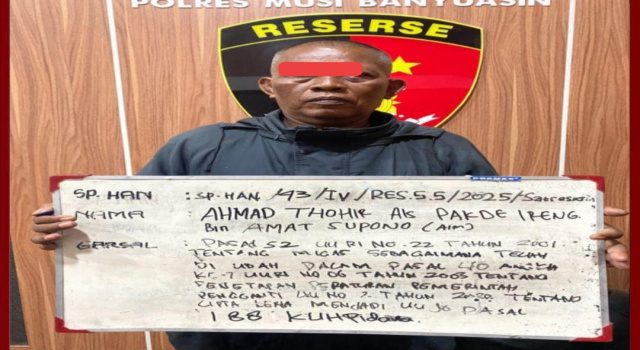 POLRES MUSI BANYUASIN
RESERSE
SP. HAN : SP. HAN / 43 / IV / RES.5.5 / 2025 / Satreskrim
NAMA : AHMAD THOHIR Als PAKDE IRENG
Bin AMAT SUPONO (Alm)
PASAL 52 UU RI NO. 22 TAHUN 2001
TENTANG MIGAS SEBAGAIMANA TELAH
DI UBAH DALAM PASAL 40 ANGKA
KE-7 UU RI NO 06 TAHUN 2023 TENTANG
PENETAPAN PERATURAN PEMERINTAH
PENGGANTI UU NO 2 TAHUN 2022 TENTANG
CIPTA KERJA MENJADI UU JO PASAL
188 KUHPidana